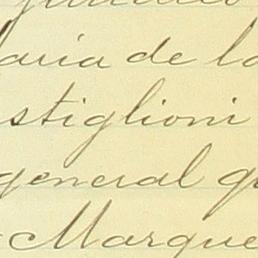 aria de la
stiglioni
general q
Marque